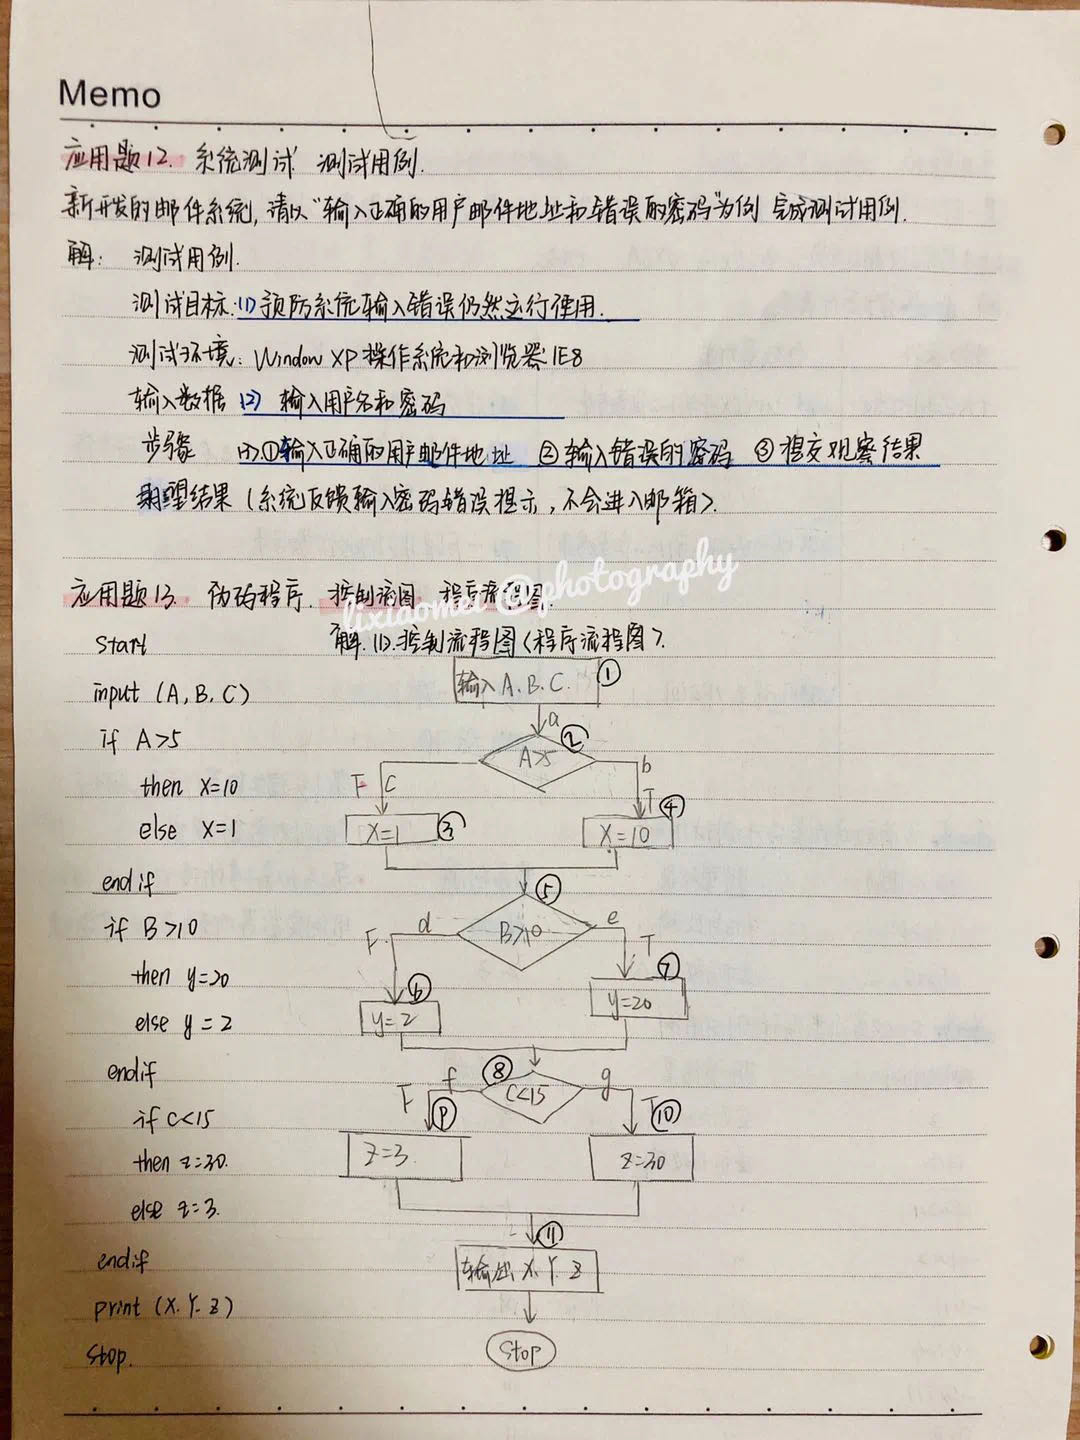 Memo
应用题12. 系统测试 测试用例.
新开发的邮件系统, 请以"输入正确的用户邮件地址和错误的密码"为例 完成测试用例.
解: 测试用例.
测试目标:(1)预防系统输入错误仍然运行使用.
测试环境: Window XP 操作系统和浏览器IE8
输入数据 (2) 输入用户名和密码
步骤 (3) ①输入正确的用户邮件地址 ②输入错误的密码 ③提交观察结果
期望结果 (系统反馈输入密码错误提示, 不会进入邮箱).
lixiaomei @photography
应用题13. 伪码程序. 控制流图 程序流程图.
start 解. (1).控制流程图(程序流程图).
输入 A.B.C. ①
input (A, B, C)
a ②
if A>5 A>5 b
F C T ④
then X=10
else X=1 X=1 ③ X=10
endif ⑤
if B>10 F. d B>10 e T
then y=20 ⑥ ⑦
else y=2 y=2 y=20
endif F f ⑧ C<15 g T ⑩
if C<15
then z=30. z=3. z=30
else z=3.
⑪
endif 输出 X. Y. Z
print (X. Y. Z)
stop. stop